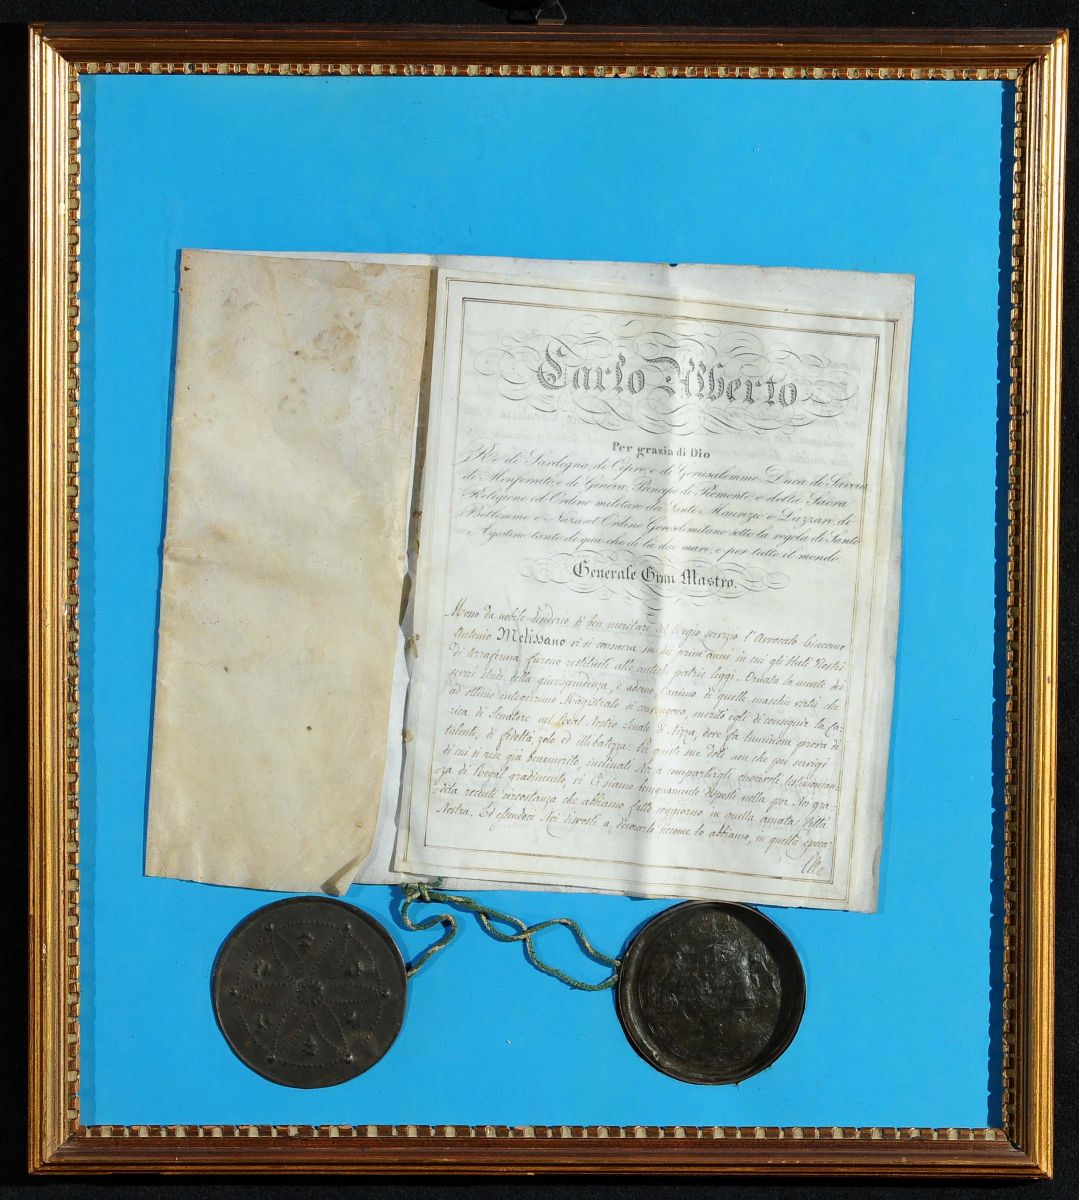 Carlo Alberto
Per grazia di Dio
Re di Sardegna, di Cipro, e di Gerusalemme, Duca di Savoia,
di Monferrato, e di Genova, Principe di Piemonte, e della Sacra
Religione ed Ordine militare de' Santi Maurizio e Lazzaro di
Betlemme e Nazaret Ordine Gerosolimitano sotto la regola di Santo
Agostino tanto di qua che di là dai mari, e per tutto il mondo.
Generale Gran Mastro.
Mosso da nobile desiderio di ben meritare del Regio servizio l'Avvocato Giacomo
Antonio Melissano vi si consacrò in su' primi anni in cui gli Stati Nostri
di terraferma furono restituiti alle antiche patrie leggi. Ornata la mente dei
severi studi della giurisprudenza, e adorno l'animo di quelle maschie virtù che
ad ottimo integerrimo Magistrato si convengono, meritò egli di conseguir la Ca-
-rica di Senatore nel Real Nostro Senato di Nizza, dove fa luminosa prova di
talenti, di fedeltà, zelo ed illibatezza. Per queste sue doti non che pei servigi
di cui si rese già benemerito, inclinati Noi a compartirgli onorevole testimonian-
-za di Regal gradimento, vi Ci siamo benignamente disposti nella per Noi gra-
-dita recente circostanza che abbiamo fatto soggiorno in quella amata Città
Nostra. Ed essendoci Noi disposti a decorarlo siccome lo abbiamo, in quella epoca